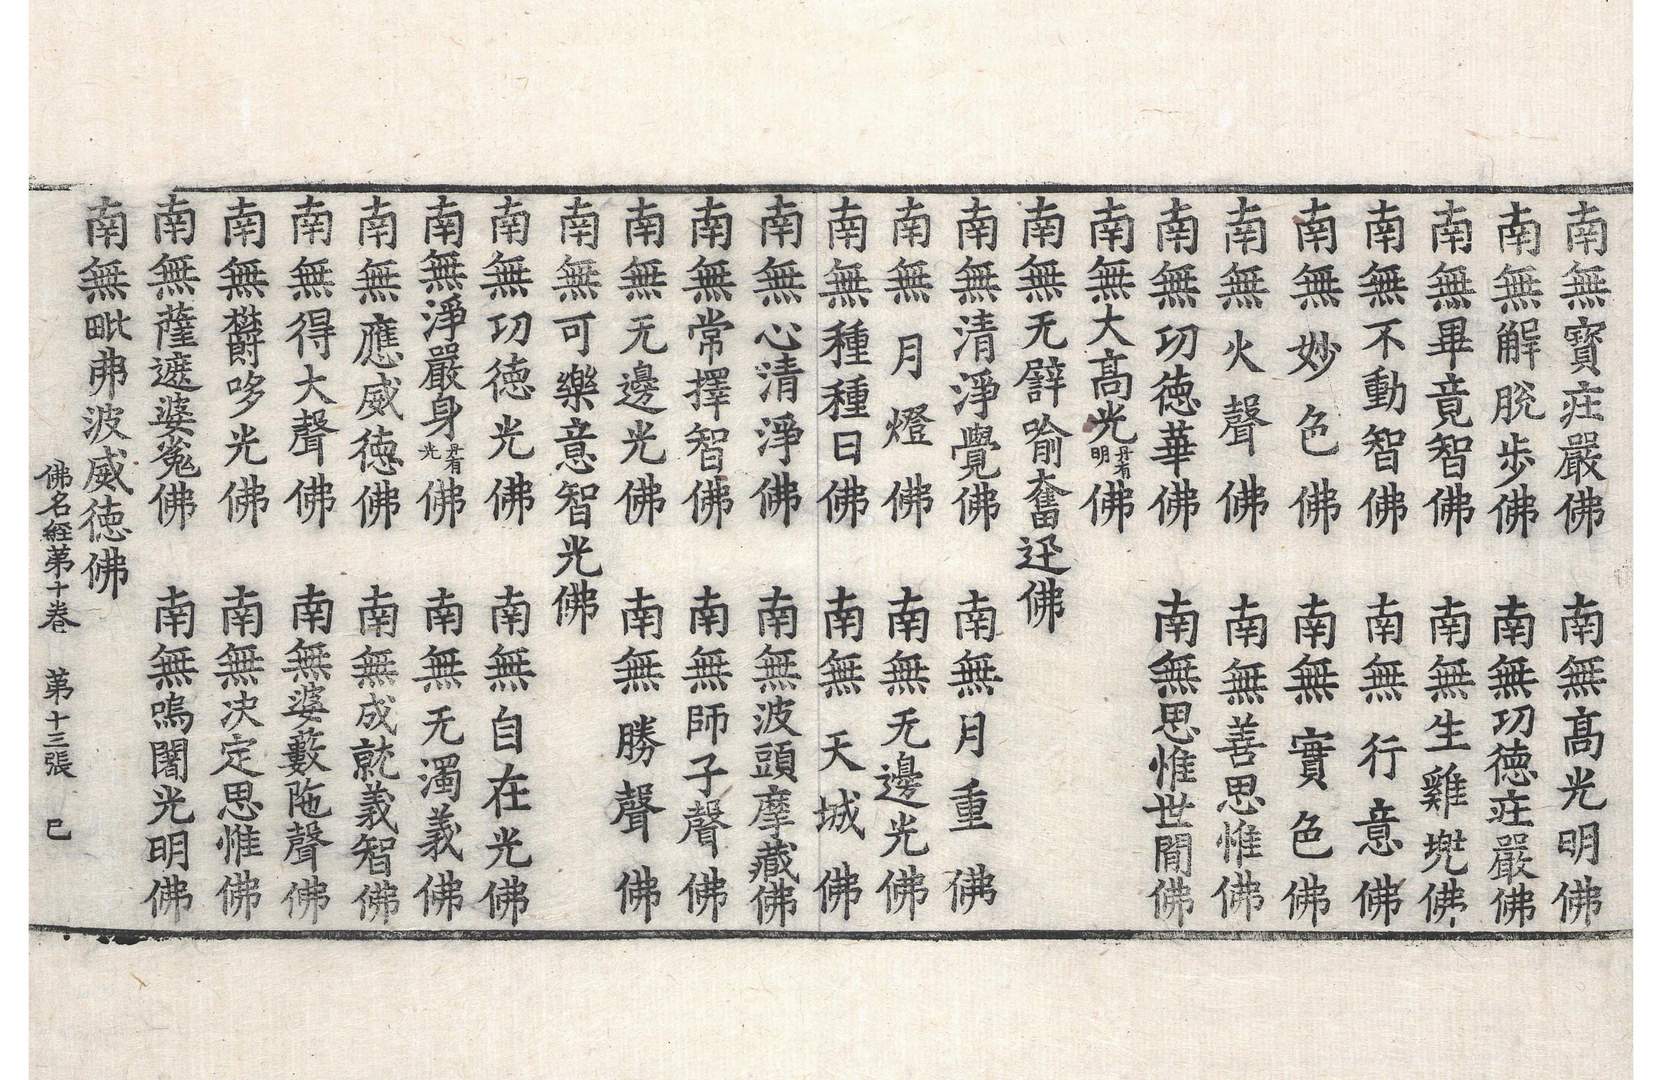 南無寶莊嚴佛 南無髙光明佛
南無解脫步佛 南無功德莊嚴佛
南無畢竟智佛 南無生難兠佛
南無不動智佛 南無行意佛
南無妙色佛 南無實色佛
南無火聲佛 南無善思惟佛
南無功德華佛 南無思惟世間佛
南無大髙光丹有明佛
南無无譬喻奮迅佛
南無清淨覺佛 南無月重佛
南無月燈佛 南無无邊光佛
南無種種日佛 南無天城佛
南無心清淨佛 南無波頭摩藏佛
南無常擇智佛 南無師子聲佛
南無无邊光佛 南無勝聲佛
南無可樂意智光佛
南無功德光佛 南無自在光佛
南無淨嚴身丹有光佛 南無无濁義佛
南無應威德佛 南無成就義智佛
南無得大聲佛 南無婆藪陁聲佛
南無欝哆光佛 南無决定思惟佛
南無薩遮婆嵬佛 南無嗚闍光明佛
南無毗弗波威德佛
佛名經第十卷 第十三張 巳